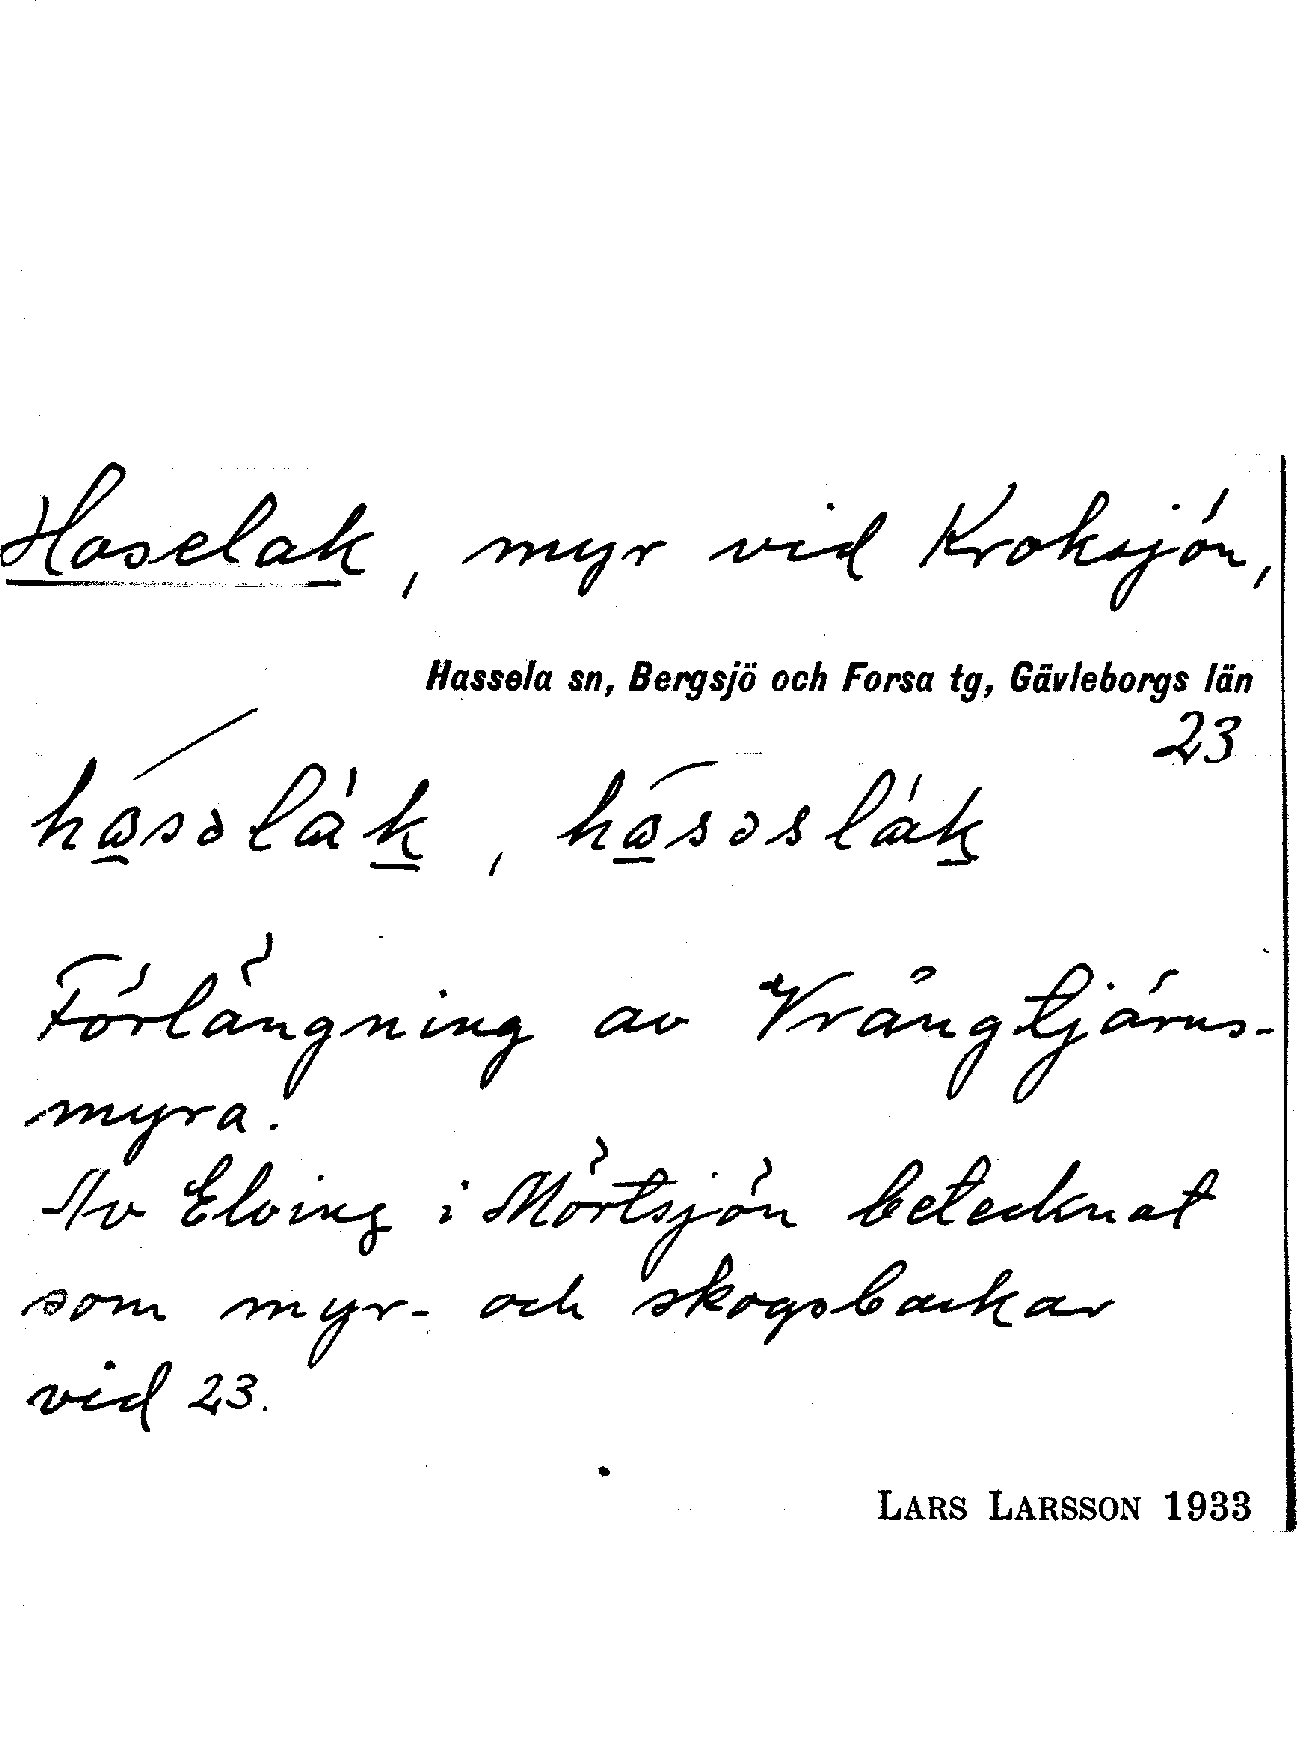 Haselak, myr vid Kroksjön,
Hassela sn, Bergsjö och Forsa tg, Gävleborgs län
23
Förlängning av Vrångtjärns-
myra.
Av Elving i Mörtsjön betecknat
som myr- och skogsbackar
vid 23.
LARS LARSSON 1933